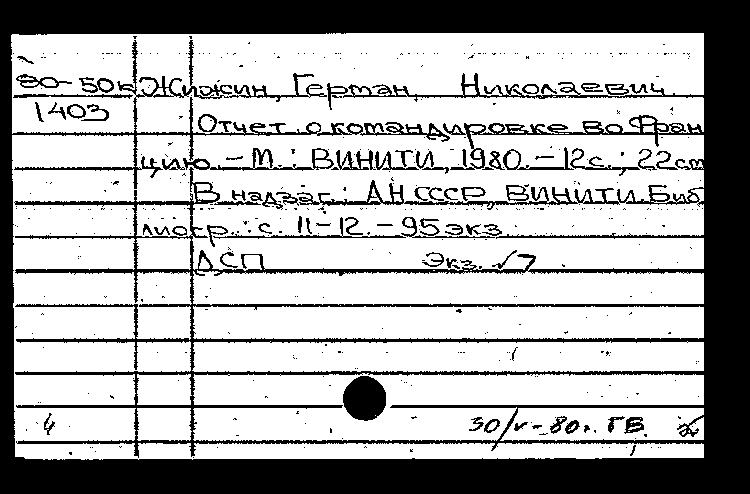 80-50к Жижин, Герман Николаевич.
1403
Отчет о командировке во Фран
цию. - М.: ВИНИТИ, 1980. - 12с.; 22см
В надзаг.: АН СССР, ВИНИТИ. Биб
лиогр.: с. 11-12. - 95 экз.
ДСП Экз. √7
4 30/V-80г. ГВ